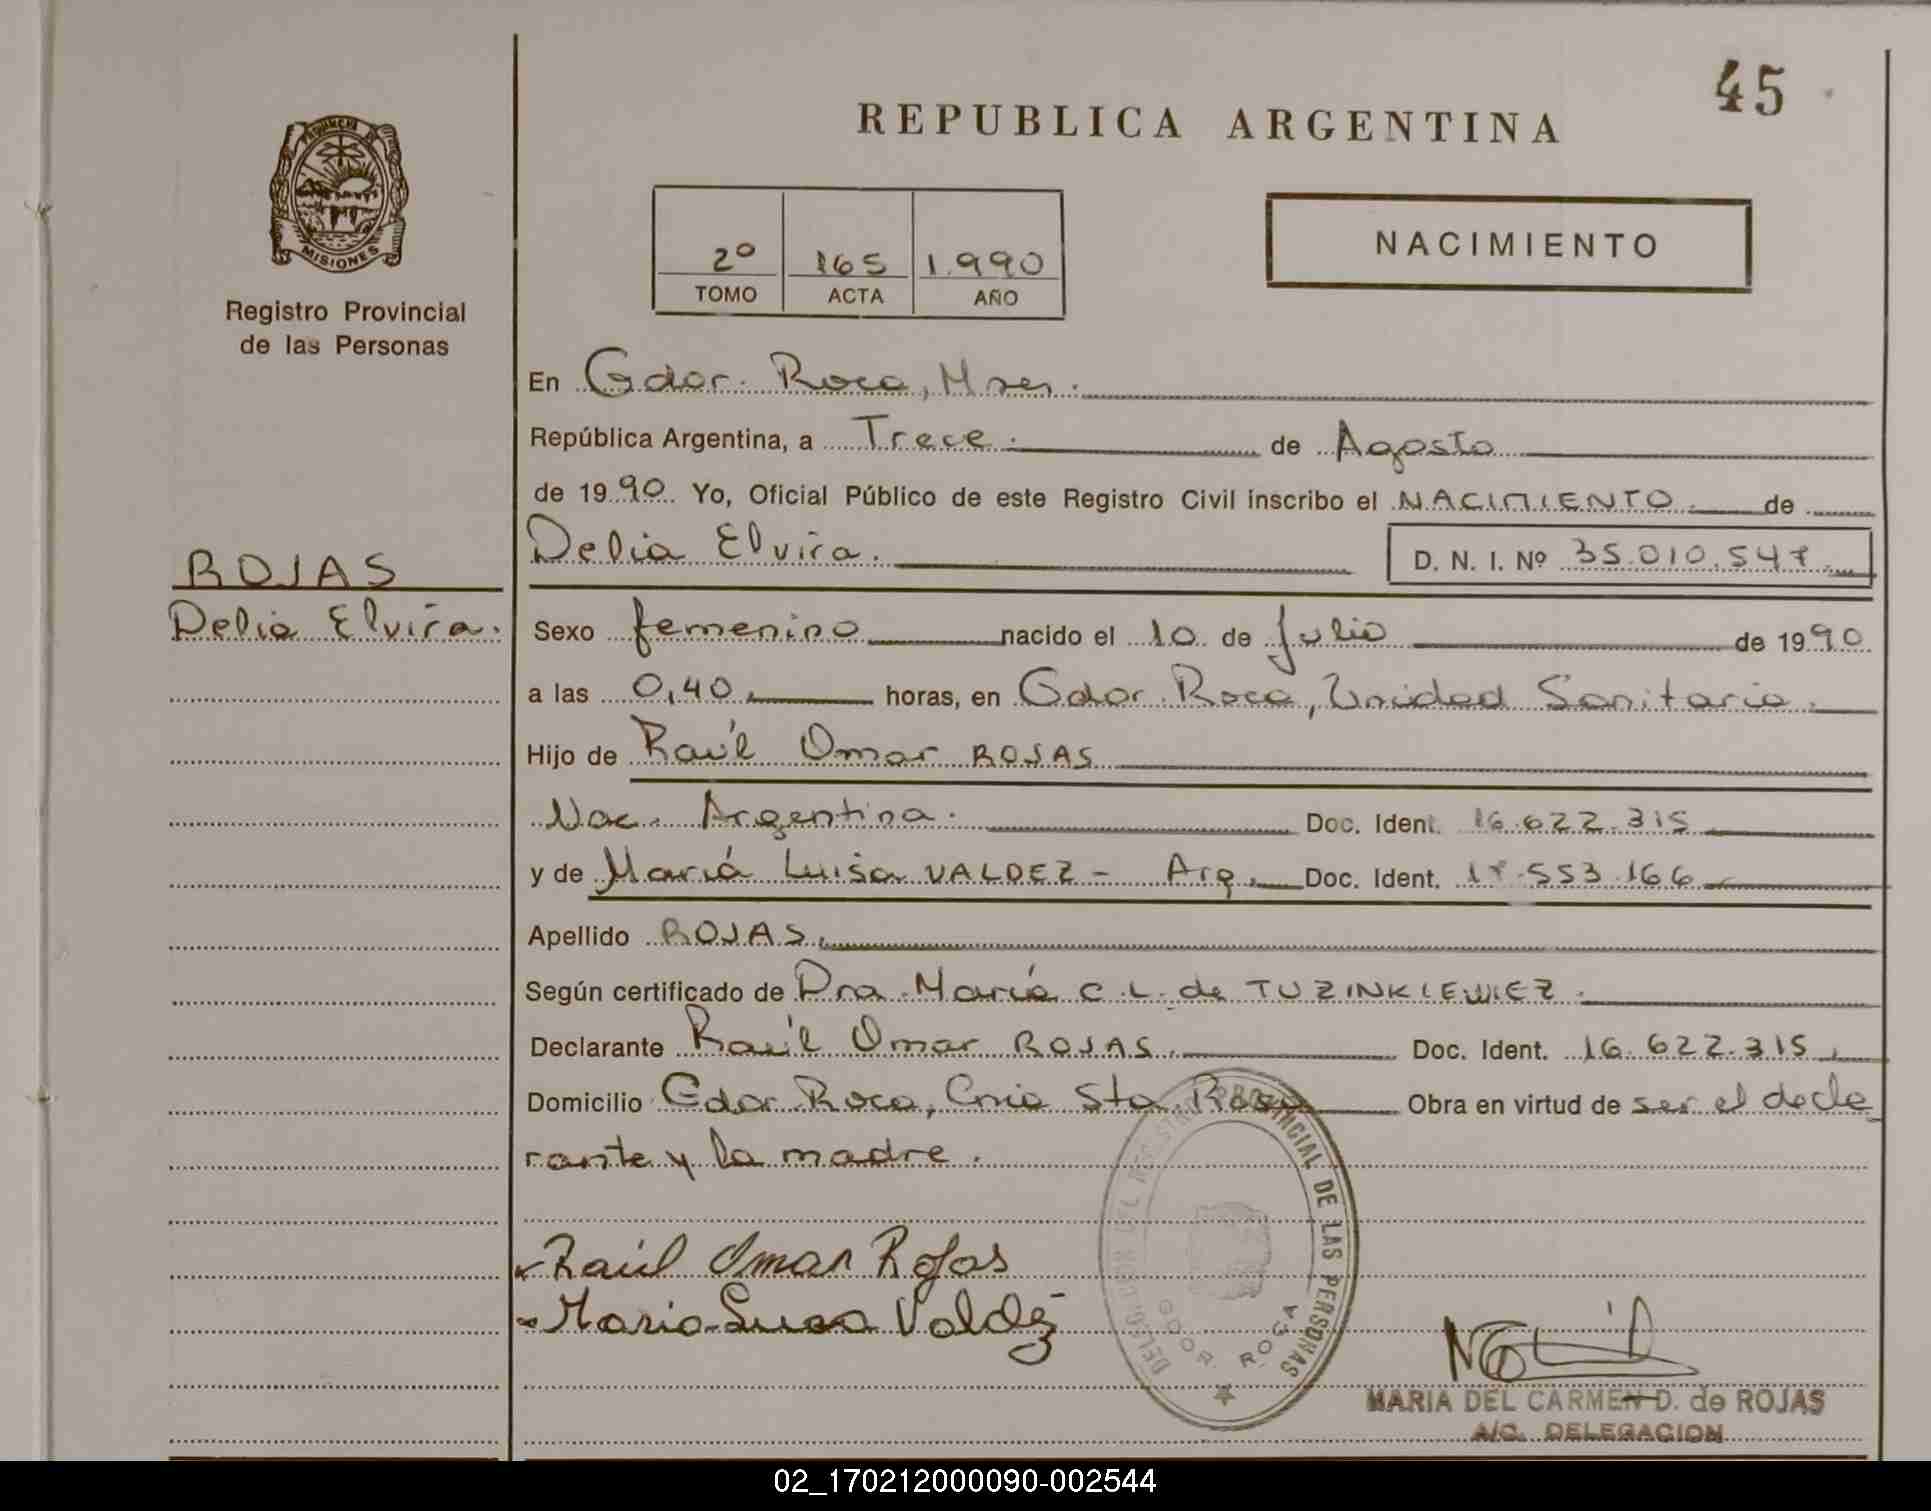 45
REPUBLICA ARGENTINA
PROVINCIA DE
MISIONES
Registro Provincial
de las Personas
2º 165 1.990
TOMO ACTA AÑO
NACIMIENTO
En Gdor. Roca, Mnes.
República Argentina, a Trece. de Agosto
de 1990. Yo, Oficial Público de este Registro Civil inscribo el NACIMIENTO de
Delia Elvira. D. N. I. Nº 35.010.547
ROJAS
Delia Elvira.
Sexo femenino nacido el 10 de Julio de 1990
a las 0,40 horas, en Gdor. Roca, Unidad Sanitaria.
Hijo de Raúl Omar ROJAS
Nac. Argentina. Doc. Ident. 16.622.315
y de María Luisa VALDEZ - Arg. Doc. Ident. 553.166
Apellido ROJAS.
Según certificado de Dra. María C. L. de TUZINKIEWIEZ.
Declarante Raúl Omar ROJAS. Doc. Ident. 16.622.315.
Domicilio Gdor Roca, Cnia Sta Rosa Obra en virtud de ser el decla
rante y la madre.
Raúl Omar Rojas
Maria Luisa Valdez
DELEGACION DEL REGISTRO PROVINCIAL DE LAS PERSONAS
GDOR. ROCA
MARIA DEL CARMEN D. de ROJAS
A/C. DELEGACION
02_170212000090-002544